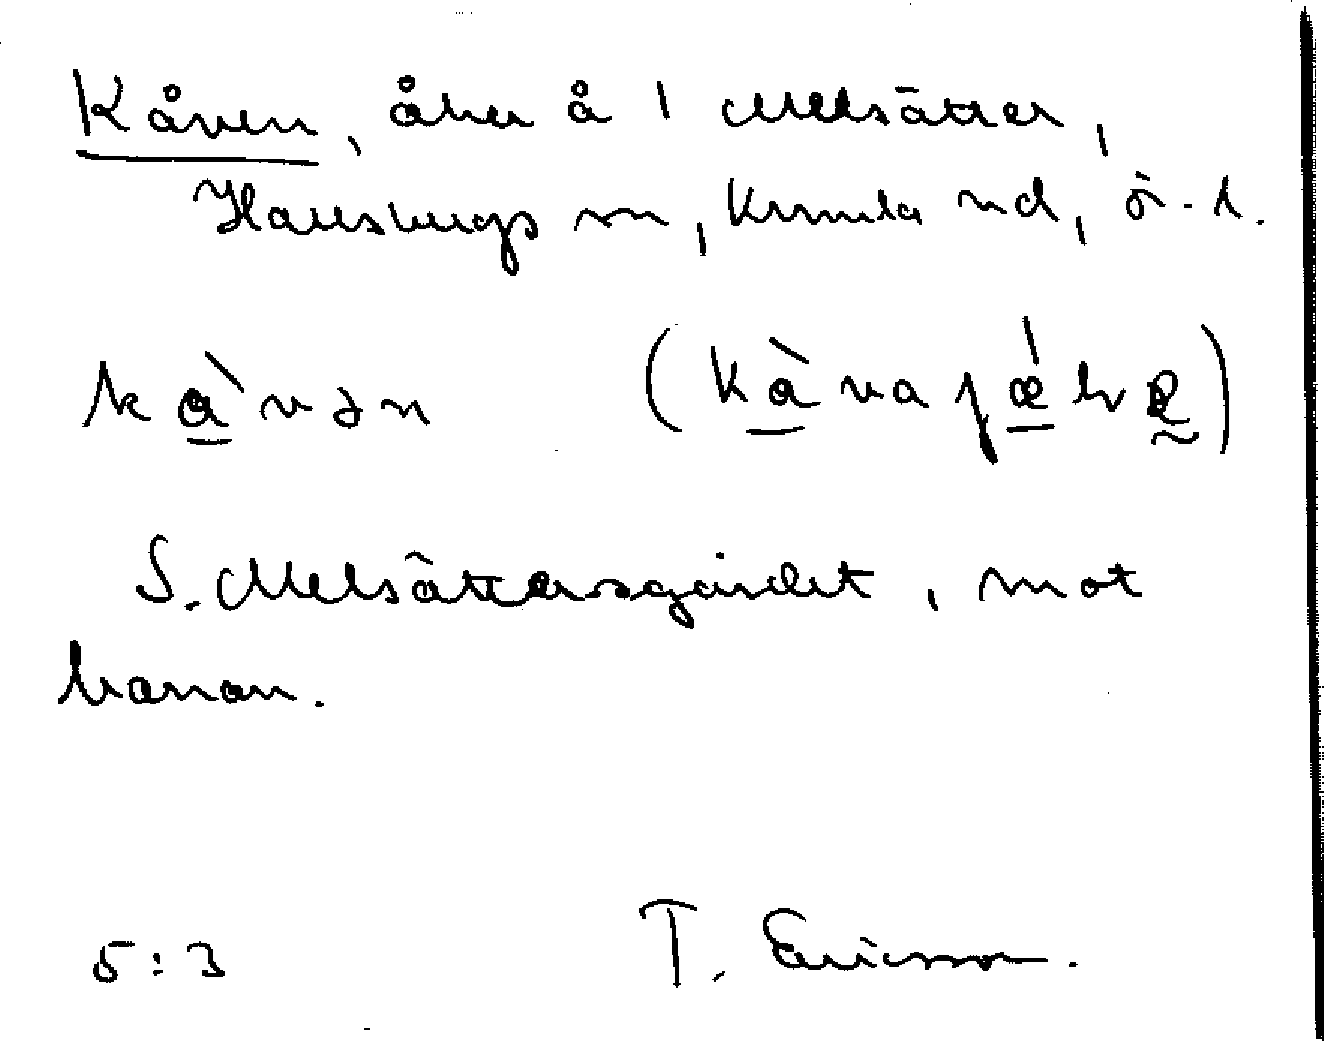 Kåven, åker å 1 Melsätter,
Hallsbergs sn, Kumla hd, ö-l.
kå̀vən (kå̀va jǽḷ)
S. Melsättersgärdet, mot
banan.
5:3 T. Ericsson.